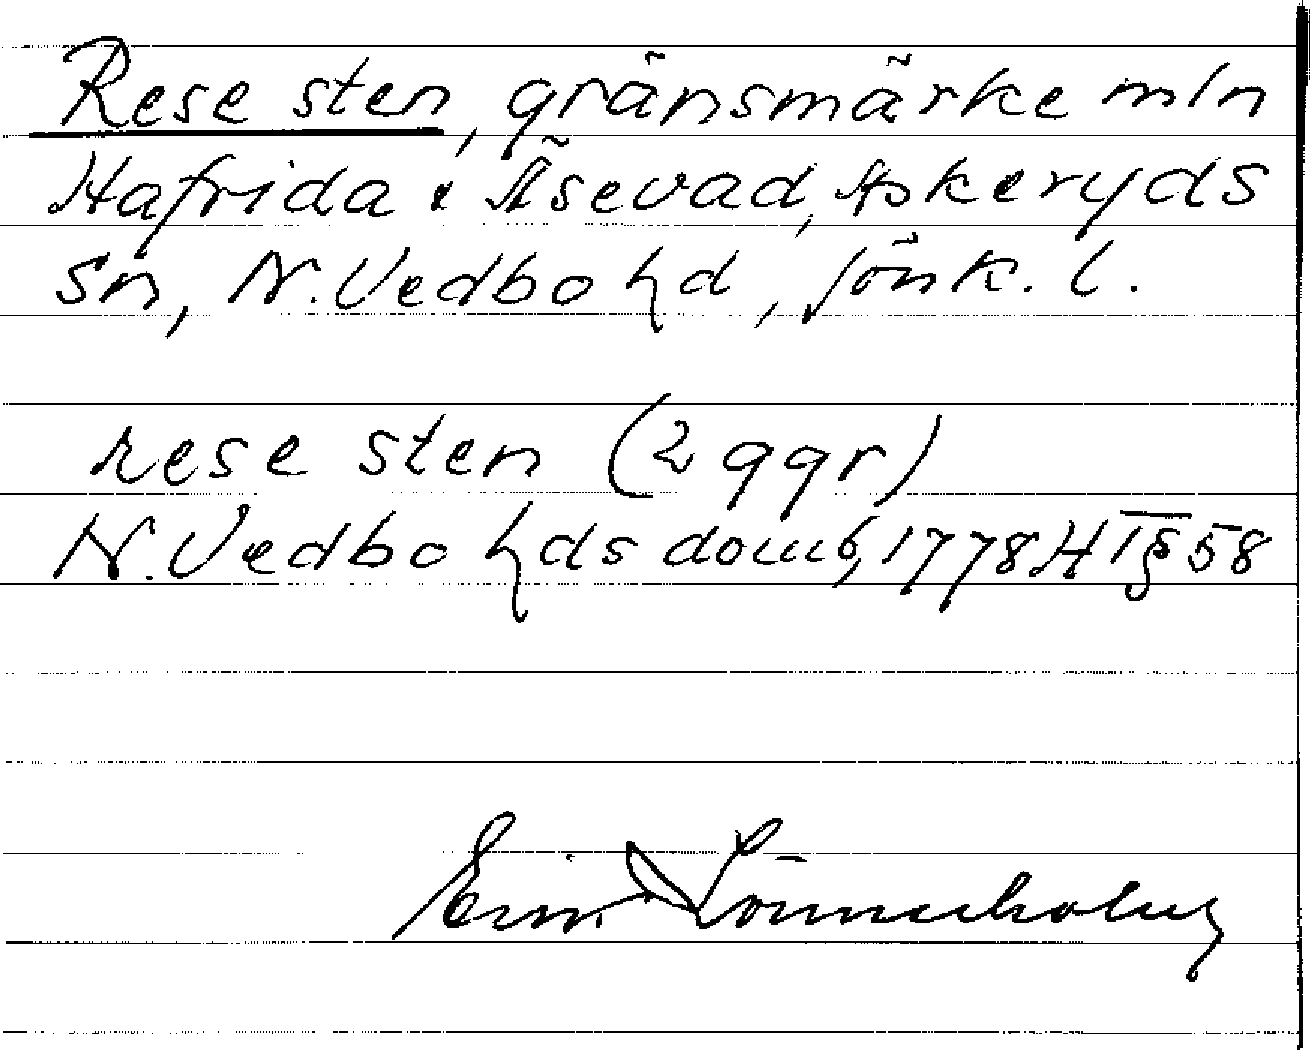 Rese sten, gränsmärke mln
Hafrida & Äsevad, Askeryds
sn, N. Vedbo hd, Jönk. l.
rese sten (2 ggr)
N. Vedbo hds domb, 1778 H T § 58
Lönnerholm